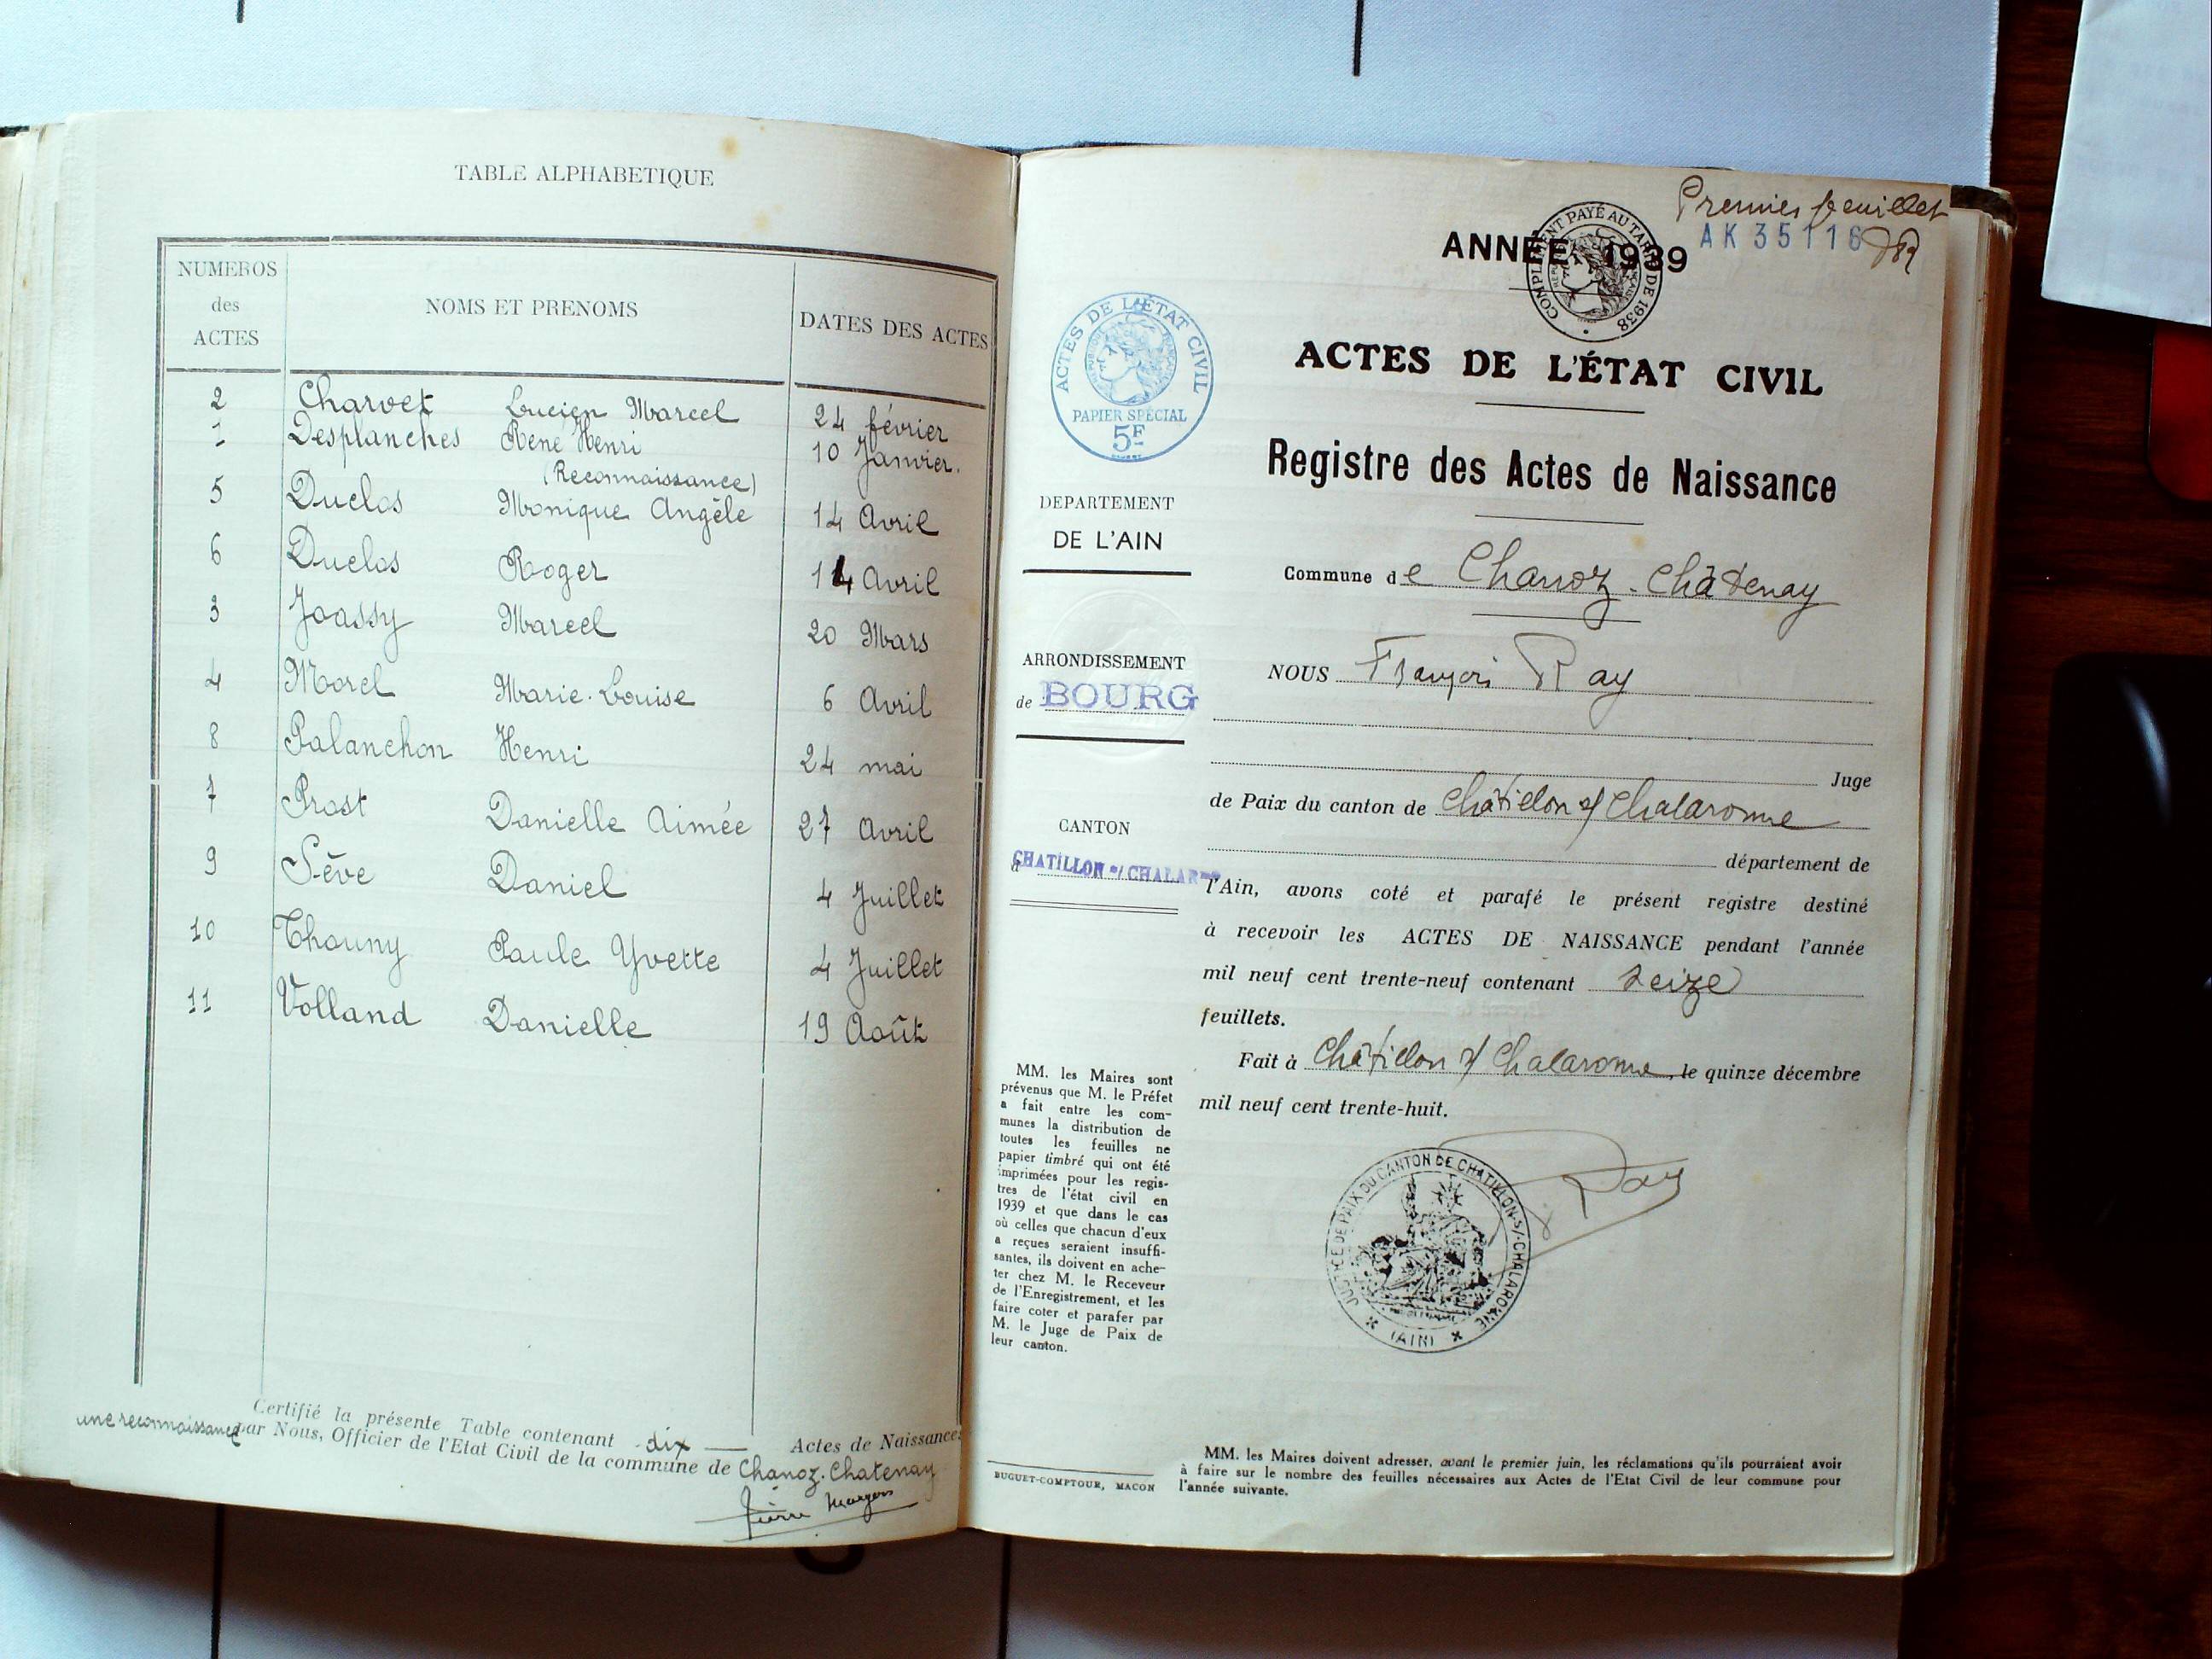 TABLE ALPHABETIQUE
NUMEROS des ACTES NOMS ET PRENOMS DATES DES ACTES
2 Charvet Lucien Marcel 24 février
1 Desplanches René Henri 10 Janvier.
(Reconnaissance)
5 Duclos Monique Angèle 14 Avril
6 Duclos Roger 14 Avril
3 Joassy Marcel 20 Mars
4 Morel Marie-Louise 6 Avril
8 Palanchon Henri 24 mai
7 Prost Danielle Aimée 27 Avril
9 Sève Daniel 4 Juillet
10 Thouny Paule Yvette 4 Juillet
11 Volland Danielle 19 Août
Certifié la présente Table contenant dix Actes de Naissances
une reconnaissance par Nous, Officier de l'Etat Civil de la commune de Chanoz-Chatenay
Premier feuillet
AK 35116
ANNÉE 1939
COMPLEMENT PAYÉ AU TARIF DE 1938
ACTES DE L'ÉTAT CIVIL
PAPIER SPÉCIAL
5F
ACTES DE L'ÉTAT CIVIL
Registre des Actes de Naissance
DEPARTEMENT
DE L'AIN
Commune de Chanoz-Châtenay
ARRONDISSEMENT
de BOURG
NOUS François Ray
Juge
de Paix du canton de Châtillon s/ Chalaronne
CANTON
d CHATILLON s/ CHALAR
département de
l'Ain, avons coté et parafé le présent registre destiné
à recevoir les ACTES DE NAISSANCE pendant l'année
mil neuf cent trente-neuf contenant seize
feuillets.
Fait à Châtillon s/ Chalaronne, le quinze décembre
mil neuf cent trente-huit.
Ray
JUSTICE DE PAIX DU CANTON DE CHATILLON-S/-CHALARONNE
(AIN)
MM. les Maires sont
prévenus que M. le Préfet
a fait entre les com-
munes la distribution de
toutes les feuilles ne
papier timbré qui ont été
imprimées pour les regis-
tres de l'état civil en
1939 et que dans le cas
où celles que chacun d'eux
a reçues seraient insuffi-
santes, ils doivent en ache-
ter chez M. le Receveur
de l'Enregistrement, et les
faire coter et parafer par
M. le Juge de Paix de
leur canton.
BUGUET-COMPTOUR, MACON
MM. les Maires doivent adresser, avant le premier juin, les réclamations qu'ils pourraient avoir
à faire sur le nombre des feuilles nécessaires aux Actes de l'Etat Civil de leur commune pour
l'année suivante.